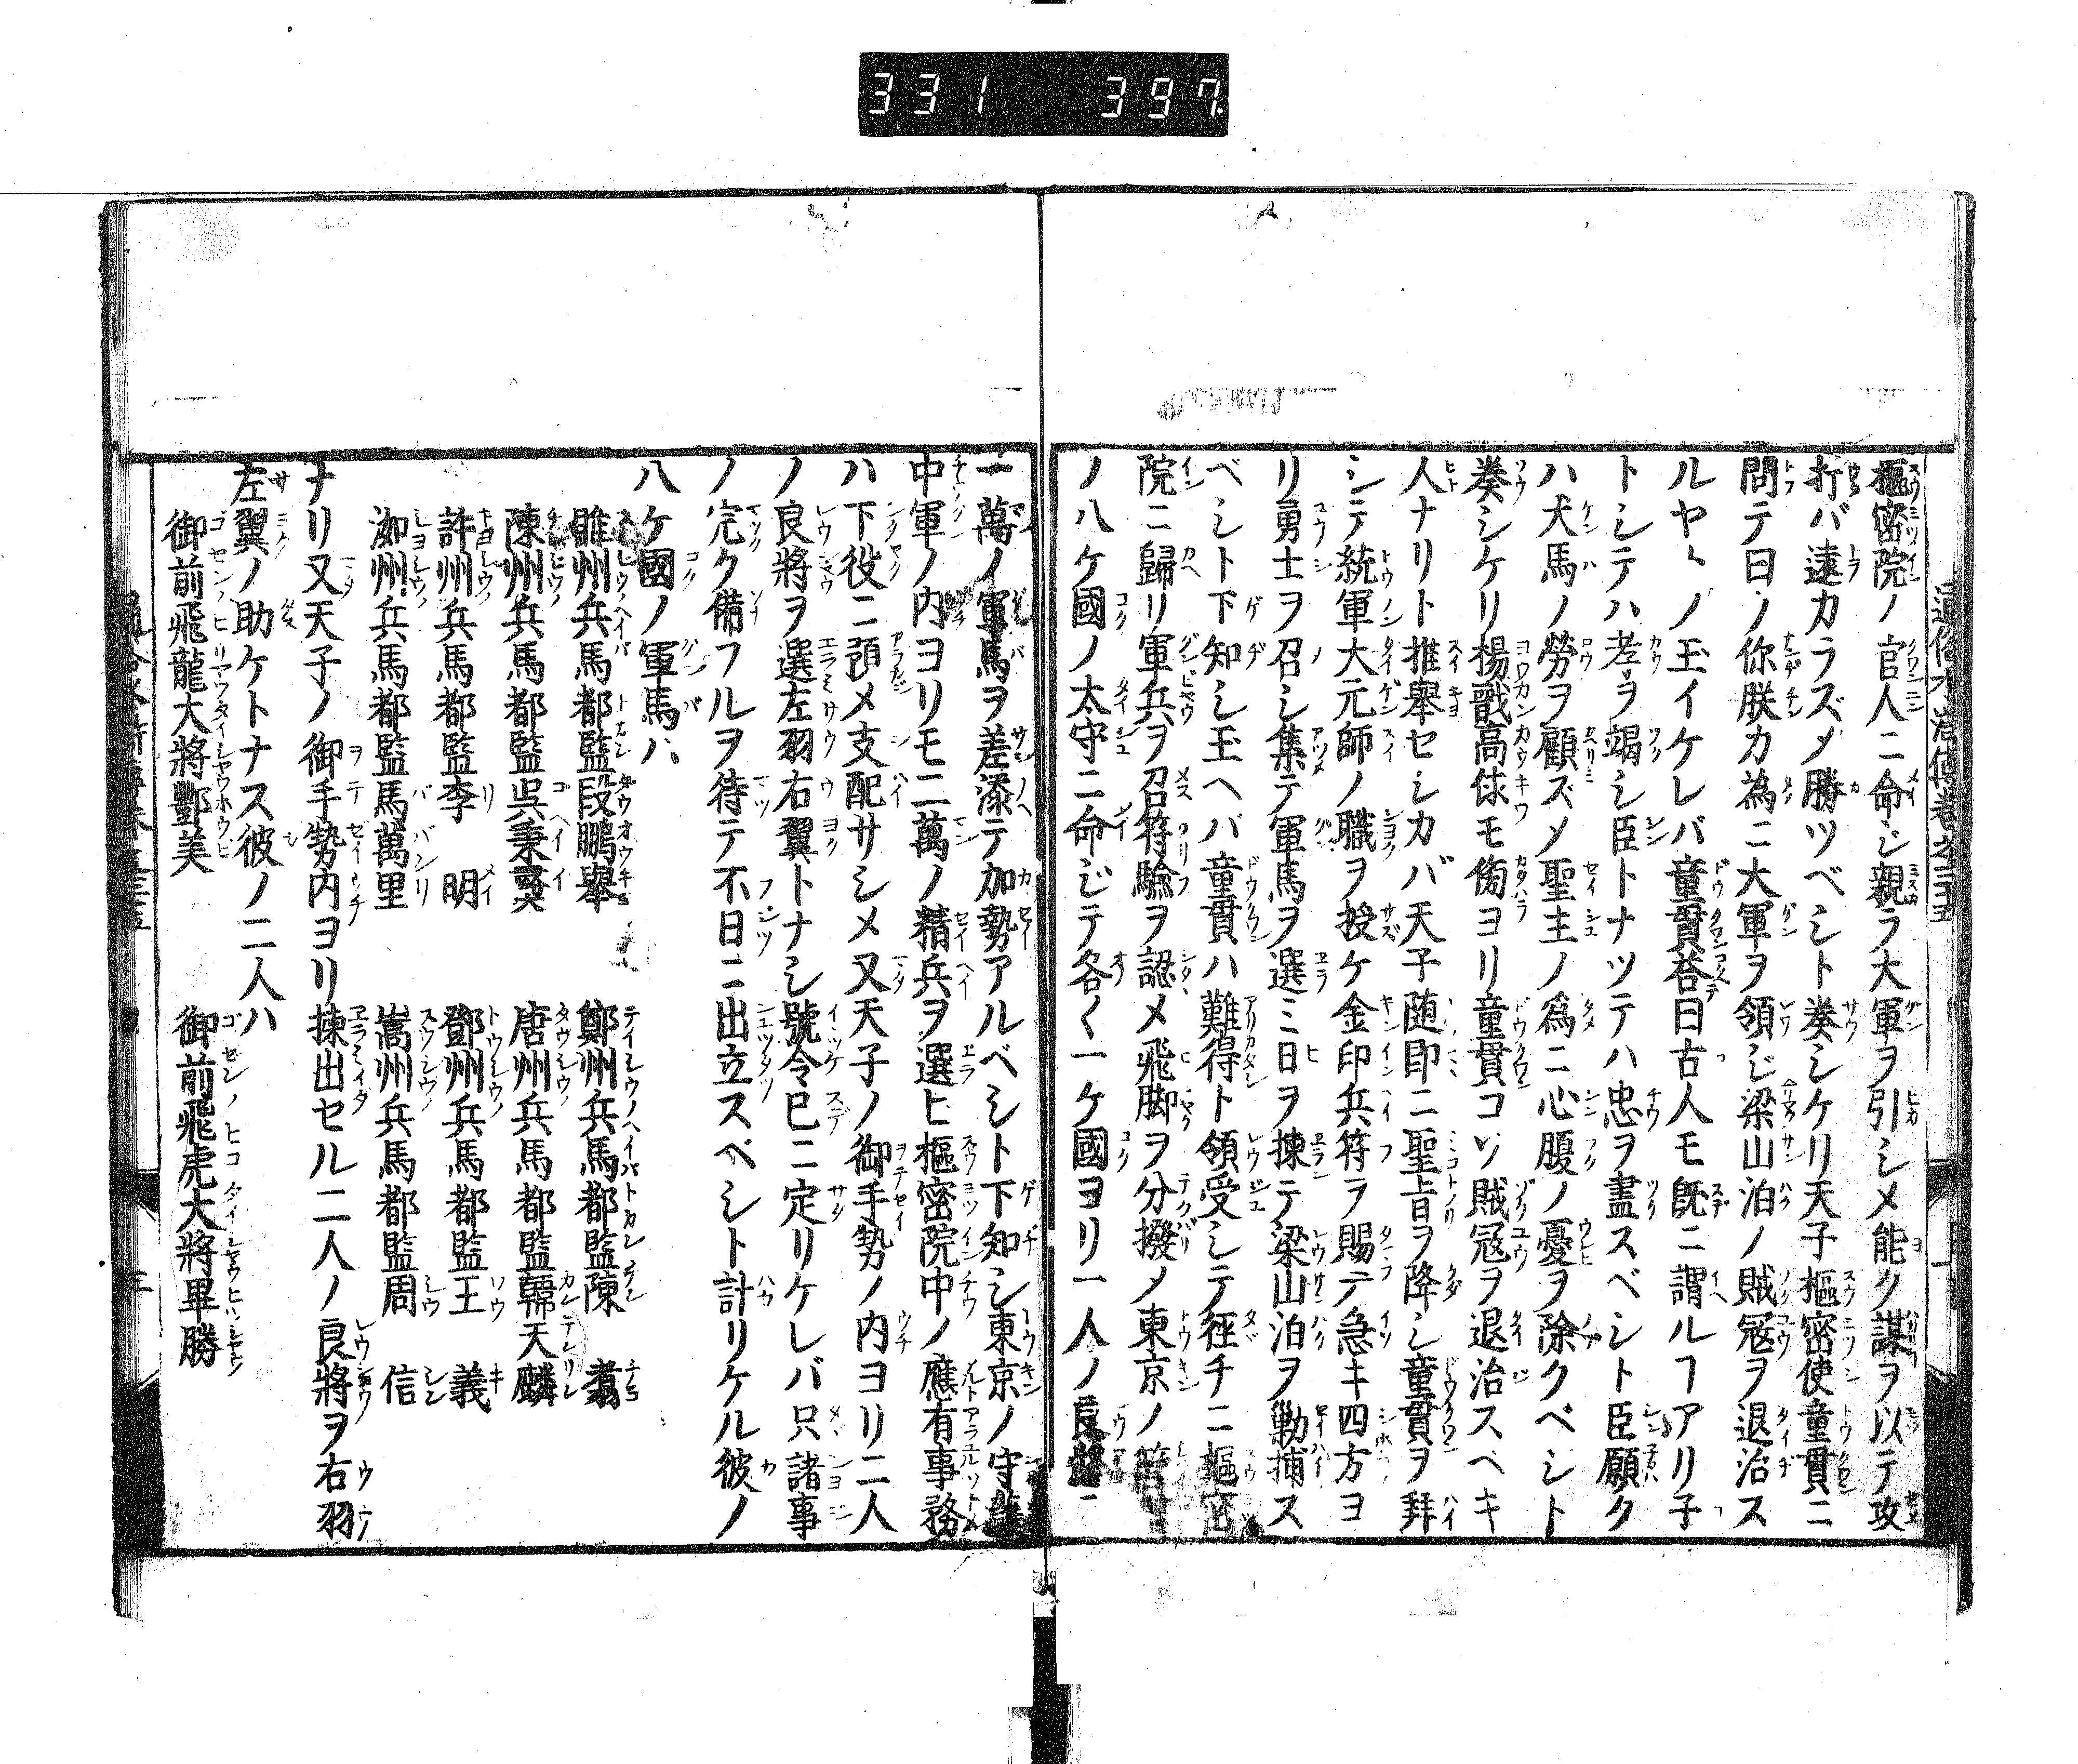 331 397
樞密院ノ官人ニ命ジ親ラ大軍ヲ引シメ能ク謀ヲ以テ攻
打バ遠カラズメ勝ツベシト奏シケリ天子樞密使童貫ニ
問テ曰ノ你朕カ為ニ大軍ヲ領ジ梁山泊ノ賊冦ヲ退治ス
ルヤヽノ玉イケレバ童貫荅曰古人モ既ニ謂ルヿアリ子
トシテハ孝ヲ竭シ臣トナツテハ忠ヲ盡スベシト臣願ク
ハ犬馬ノ勞ヲ顧ズメ聖主ノ爲ニ心腹ノ憂ヲ除クベシト
奏シケリ楊戩高俅モ傍ヨリ童貫コソ賊冦ヲ退治スベキ
人ナリト推舉セシカバ天子随即ニ聖旨ヲ降シ童貫ヲ拜
シテ統軍大元師ノ職ヲ授ケ金印兵符ヲ賜テ急キ四方ヨ
リ勇士ヲ召シ集テ軍馬ヲ選ミ日ヲ揀テ梁山泊ヲ勦捕ス
ベシト下知シ玉ヘバ童貫ハ難得ト領受シテ徑チニ樞密
院ニ歸リ軍兵ヲ召符驗ヲ認メ飛脚ヲ分撥メ東京ノ管下
ノ八ケ國ノ太守ニ命ジテ各く一ケ國ヨリ一人ノ良將ニ
一萬ノ軍馬ヲ差添テ加勢アルベシト下知シ東京ノ守護
中軍ノ内ヨリモ二萬ノ精兵ヲ選ヒ樞密院中ノ應有事務
ハ下役ニ預メ支配サシメ又天子ノ御手勢ノ内ヨリ二人
ノ良將ヲ選左羽右翼トナシ號令已ニ定リケレバ只諸事
ノ完ク備フルヲ待テ不日ニ出立スベシト計リケル彼ノ
八ケ國ノ軍馬ハ
睢州兵馬都監段鵬舉 鄭州兵馬都監陳翥
陳州兵馬都監呉秉彛 唐州兵馬都監韓天麟
許州兵馬都監李明 鄧州兵馬都監王義
洳州兵馬都監馬萬里 嵩州兵馬都監周信
ナリ又天子ノ御手勢内ヨリ揀出セル二人ノ良將ヲ右羽
左翼ノ助ケトナス彼ノ二人ハ
御前飛龍大將酆美 御前飛虎大將畢勝